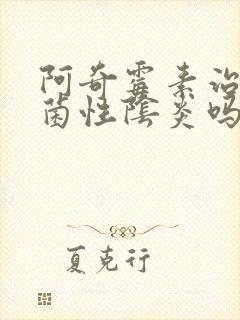 阿奇霉素治
菌性阴炎吗
夏克行